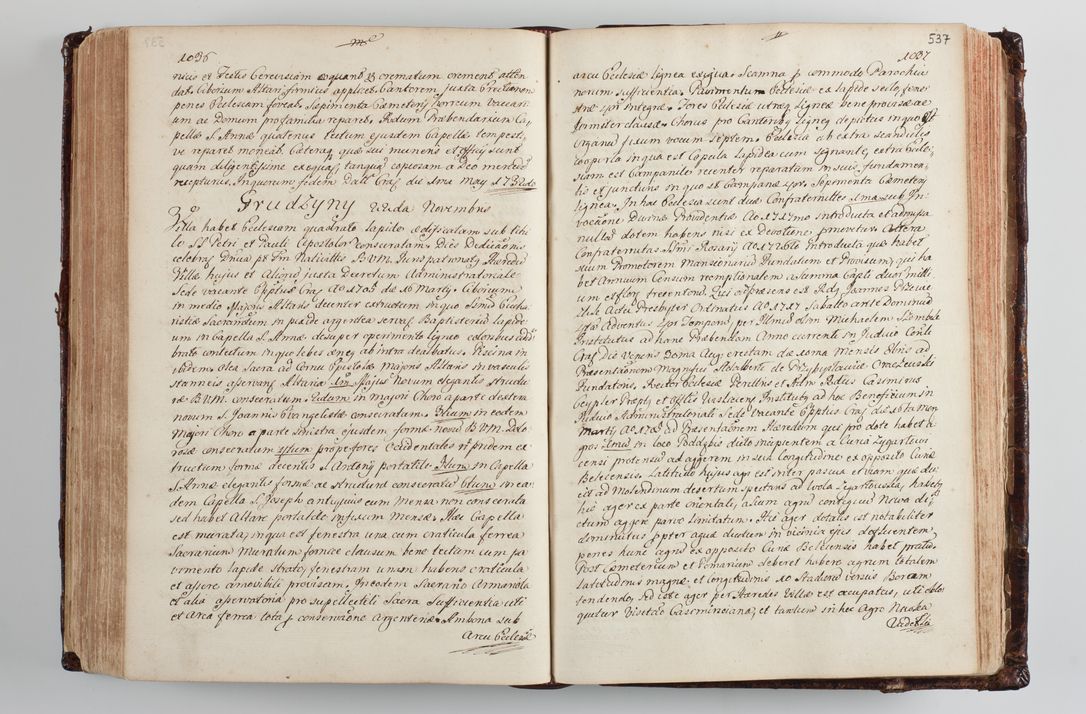 1036
nisio et Testis Cerevisiam
dat. Ciborium Altari firmius applicet. Cantorem juxta Erectionem
penes Ecclesiam foveat. Sepimenta Cæmeterij horreum
um ac Domum pro familia reparet. Redum Præbendarium Ca
pellæ S. Annæ quatenus tectum ejusdem Capellæ
ve reparet moneat. Cætera quæ sui muneris et officij sunt
quam diligentissime exequat, tanquam copiosam a Deo mercedem
recepturus. In quorum fidem Datt. Crac. die 1ma May 173
Grudzyny 22da Novembris
Villa habet Ecclesiam quadrato lapide ædificatam sub titu
lo S. Petri et Pauli Apostolor. consecratam. Dies Dedicationis
celebrat. Dnica pt. Ftm Nativittis B.V.M. Juris patronatus Hæredis
Villæ hujus et Aliena juxta Decretum Administratoriale
Sede vacante Epptus Crac. AD 1705 die 16 Martij. Ciborium
in medio Majoris Altaris decenter extructum in quo Ssmū Eucha
ristiæ Sacramentum in pixide argentea servat. Baptisterium lapide
um in Capella S. Annæ desuper operimento ligneo coloribus
brato contectum in quo lebes æneus ab intra dealbatus. Piscina in
ibidem. Olea Sacra ad Cornu Epistolæ Majoris Altaris in vasculis
stanneis asservant. Altaria Imū Majus novum elegantis structu
ræ B.V.M. consecratum. 2dum in majori Choro a parte dextera
novum S. Joannis Evangelistæ consecratum. 3tium in eodem
Majori Choro a parte sinistra ejusdem formæ novū B.V.M. Dolo
rosæ consecratum prope fores occidentales pridem ex
tructum formæ decentis S. Antonij portatile. in Capella
S. Annæ elegantis formæ ac structuræ consecratū 6tum in ea
dem Capella S. Joseph antiquius cum Mensa non consecrata
sed habet Altare portatile infixum Mensæ. Hæc Capella
est murata, in qua est fenestra una cum craticula ferrea
Sacrarium Muratum fornice clausum bene tectum cum pa
vimento lapide strato, fenestram unam habens craticula
et assere amovibili provisam. In eodem Sacrario Armariola
et alia asservatoria pro supellectili Sacra Sufficientia uti
et Arca ferrea tota p conservatione Argenteriæ. Ambona sub
Arcu Ecclesiæ
537
1037
arcu Ecclesiæ lignea exigua. Scamna p commodo Parochia
norum sufficientia. Pavimentum Ecclesiæ ex lapide secto, fene
stræ 4or integræ. Fores Ecclesiæ utræq ligneæ bene provisæ ac
firmiter clausæ. Chorus pro Cantoribq ligneq depictus in quo est
Organū fixum vocum Septem. Ecclesia ab extra scandulis
cooperta in qua est Copula lapidea cum Signante, extra Eccle
siam est Campanile recenter reparatum in suis fundamen
tis ex junctims in quo st Campanæ 4or. Sepimenta Cæmeterij
lignea. In hac Ecclesia sunt duæ Confraternittes 1ma sub In
vocaone Divinæ Providentiæ AD 1717mo introducta et admissa
nullam dotem habens nisi ex Devotione provenitur. Altera
Confraternitas Ssmi Rosarij AD 1726to Introducta quæ habet
suum Promotorem Mansionariū Fundatum et Provisum, qui ha
bet Annuum Censum reemptionalem a Summa Capti duor. milli
um et flor. trecentorū. Qui est præsens est Rdq Joannes
Actu Presbyter Ordinatus AD 1717 Sabatto ante Dominicā
Adventus 4or Temporū, per Illmū olim Michaelem Szembek
Institutus ad hanc Præbendam Anno currenti in Judicio Consti
Crac. die Veneris Doma Aug. erestam die 20ma Mensis
Præsentationem Magnifici Adalberti de Przybysławice
Fundatoris. Rector Ecclesiæ Perillris et Adm. Rdus Casimirus
Ceypler Præptq et Offlis Institutq ad hoc Beneficium in
Judicio Administratoriali Sede Vacante Epptus Crac. die 16ta Men.
Martij AD 1705 Ad Præsentationem Hæredum qui pro dote habet a
gros in loco Poddybie dicto incipientem a Curia Zygartow
censi protensū ad aggerem in sua Longitudine ex opposito Curiæ
Belecensis. Latitudo hujus agri est inter pascua et viam quæ du
cit ad Molendinum desertum spectans ad Wola Zgartowska, habet
hic ager ex parte orientali, alium agrū contiguum Nowa di
ctum aggere parvo limitatum. Hic ager dotalis est notabiliter
diminutus ppter aquæ ductum in vicinia ejus defluentem
penes hunc agrū ex opposito Curiæ Belecensis habet pratū.
Post Cæmeterium et Pomarium deberet habere agrum totalem
Latitudinis magnæ, et longitudinis 20 Stadiorū versus Boream
tendendo, sed iste ager per Hæredes Villæ est occupatus, uti elo
quitur Visitatio Casimirsciana, et tantum in hoc Agro